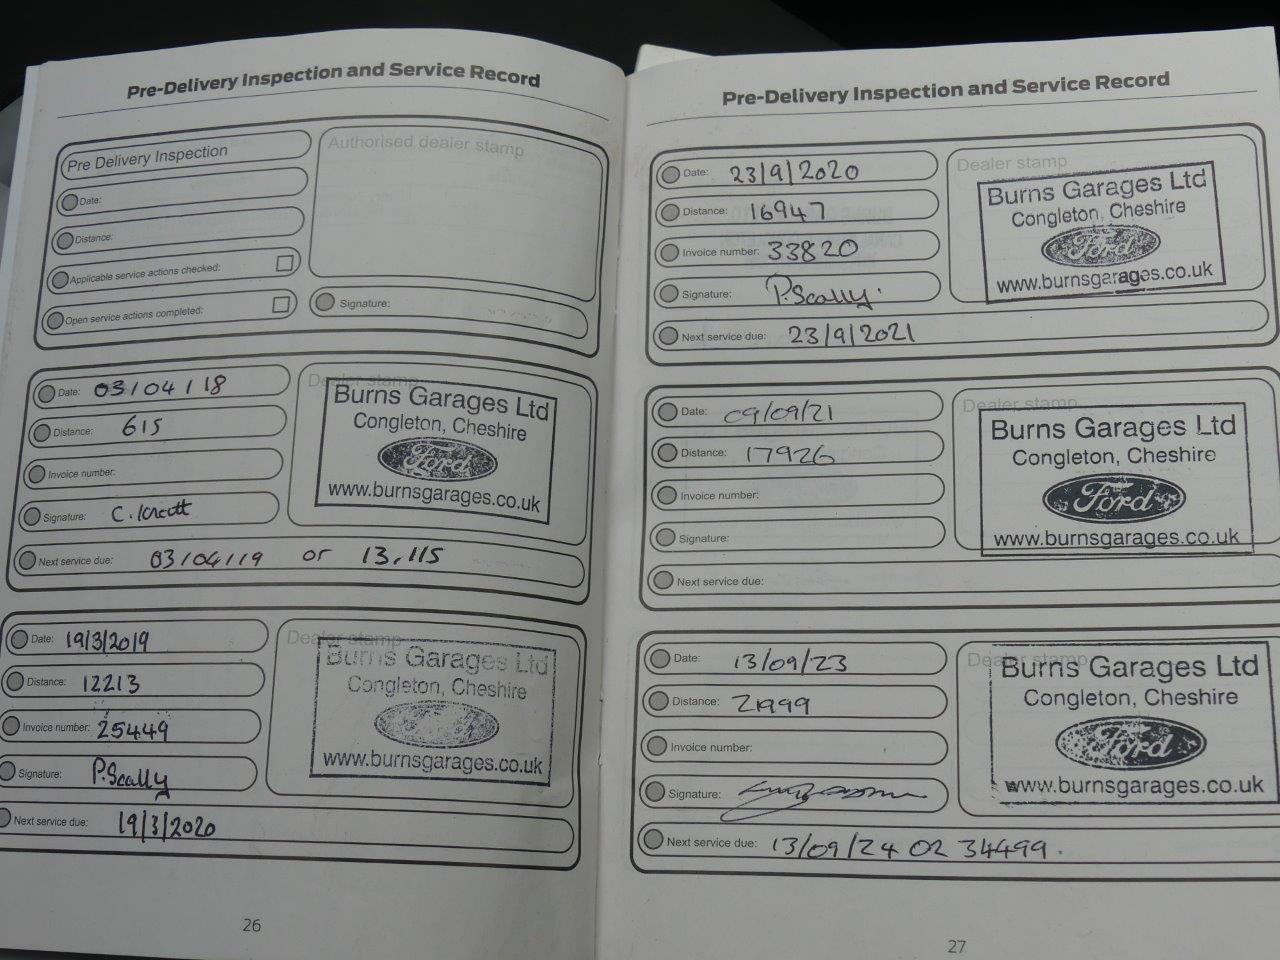 Pre-Delivery Inspection and Service Record
Pre Delivery Inspection
Date:
Distance:
Applicable service actions checked:
Open service actions completed:
Authorised dealer stamp
Signature:
Date: 03/04/18
Distance: 615
Invoice number:
Signature: C.
Next service due: 03/04/19 or 13,115
Dealer stamp
Burns Garages Ltd
Congleton, Cheshire
Ford
www.burnsgarages.co.uk
Date: 19/3/2019
Distance: 12213
Invoice number: 25449
Signature: P.Scally
Next service due: 19/3/2020
Dealer stamp
Burns Garages Ltd
Congleton, Cheshire
www.burnsgarages.co.uk
26
Pre-Delivery Inspection and Service Record
Date: 23/9/2020
Distance: 16947
Invoice number: 33820
Signature: P.Scally.
Next service due: 23/9/2021
Dealer stamp
Burns Garages Ltd
Congleton, Cheshire
Ford
www.burnsgarages.co.uk
Date: 09/09/21
Distance: 17926
Invoice number:
Signature:
Next service due:
Dealer stamp
Burns Garages Ltd
Congleton, Cheshire
Ford
www.burnsgarages.co.uk
Date: 13/09/23
Distance: 21999
Invoice number:
Signature:
Next service due: 13/09/24 OR 34499.
Dealer stamp
Burns Garages Ltd
Congleton, Cheshire
Ford
www.burnsgarages.co.uk
27